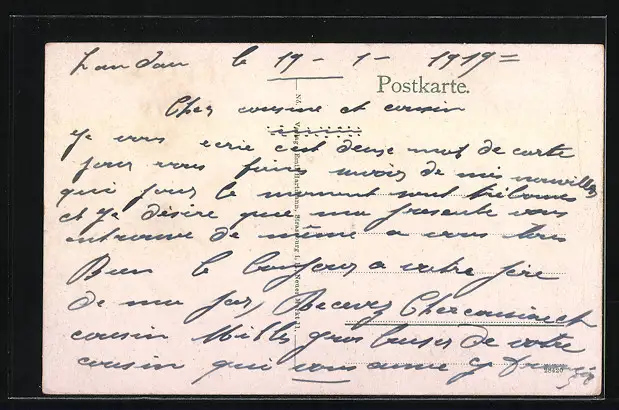 Landau le 19 - 1 - 1919 =
Postkarte.
Cher cousine et cousin
Je vous ecrie c'est deuse mot de carte
pour vous faire savoir de mes nouvelles
qui pour le moment sont trè bonne
et Je désire que ma presente vous
entrouve de même a vous tous
Bien le bonjour a votre père
de ma par, Recevez Cher cousine et
cousin Milles gros baiser de votre
cousin qui vous aime